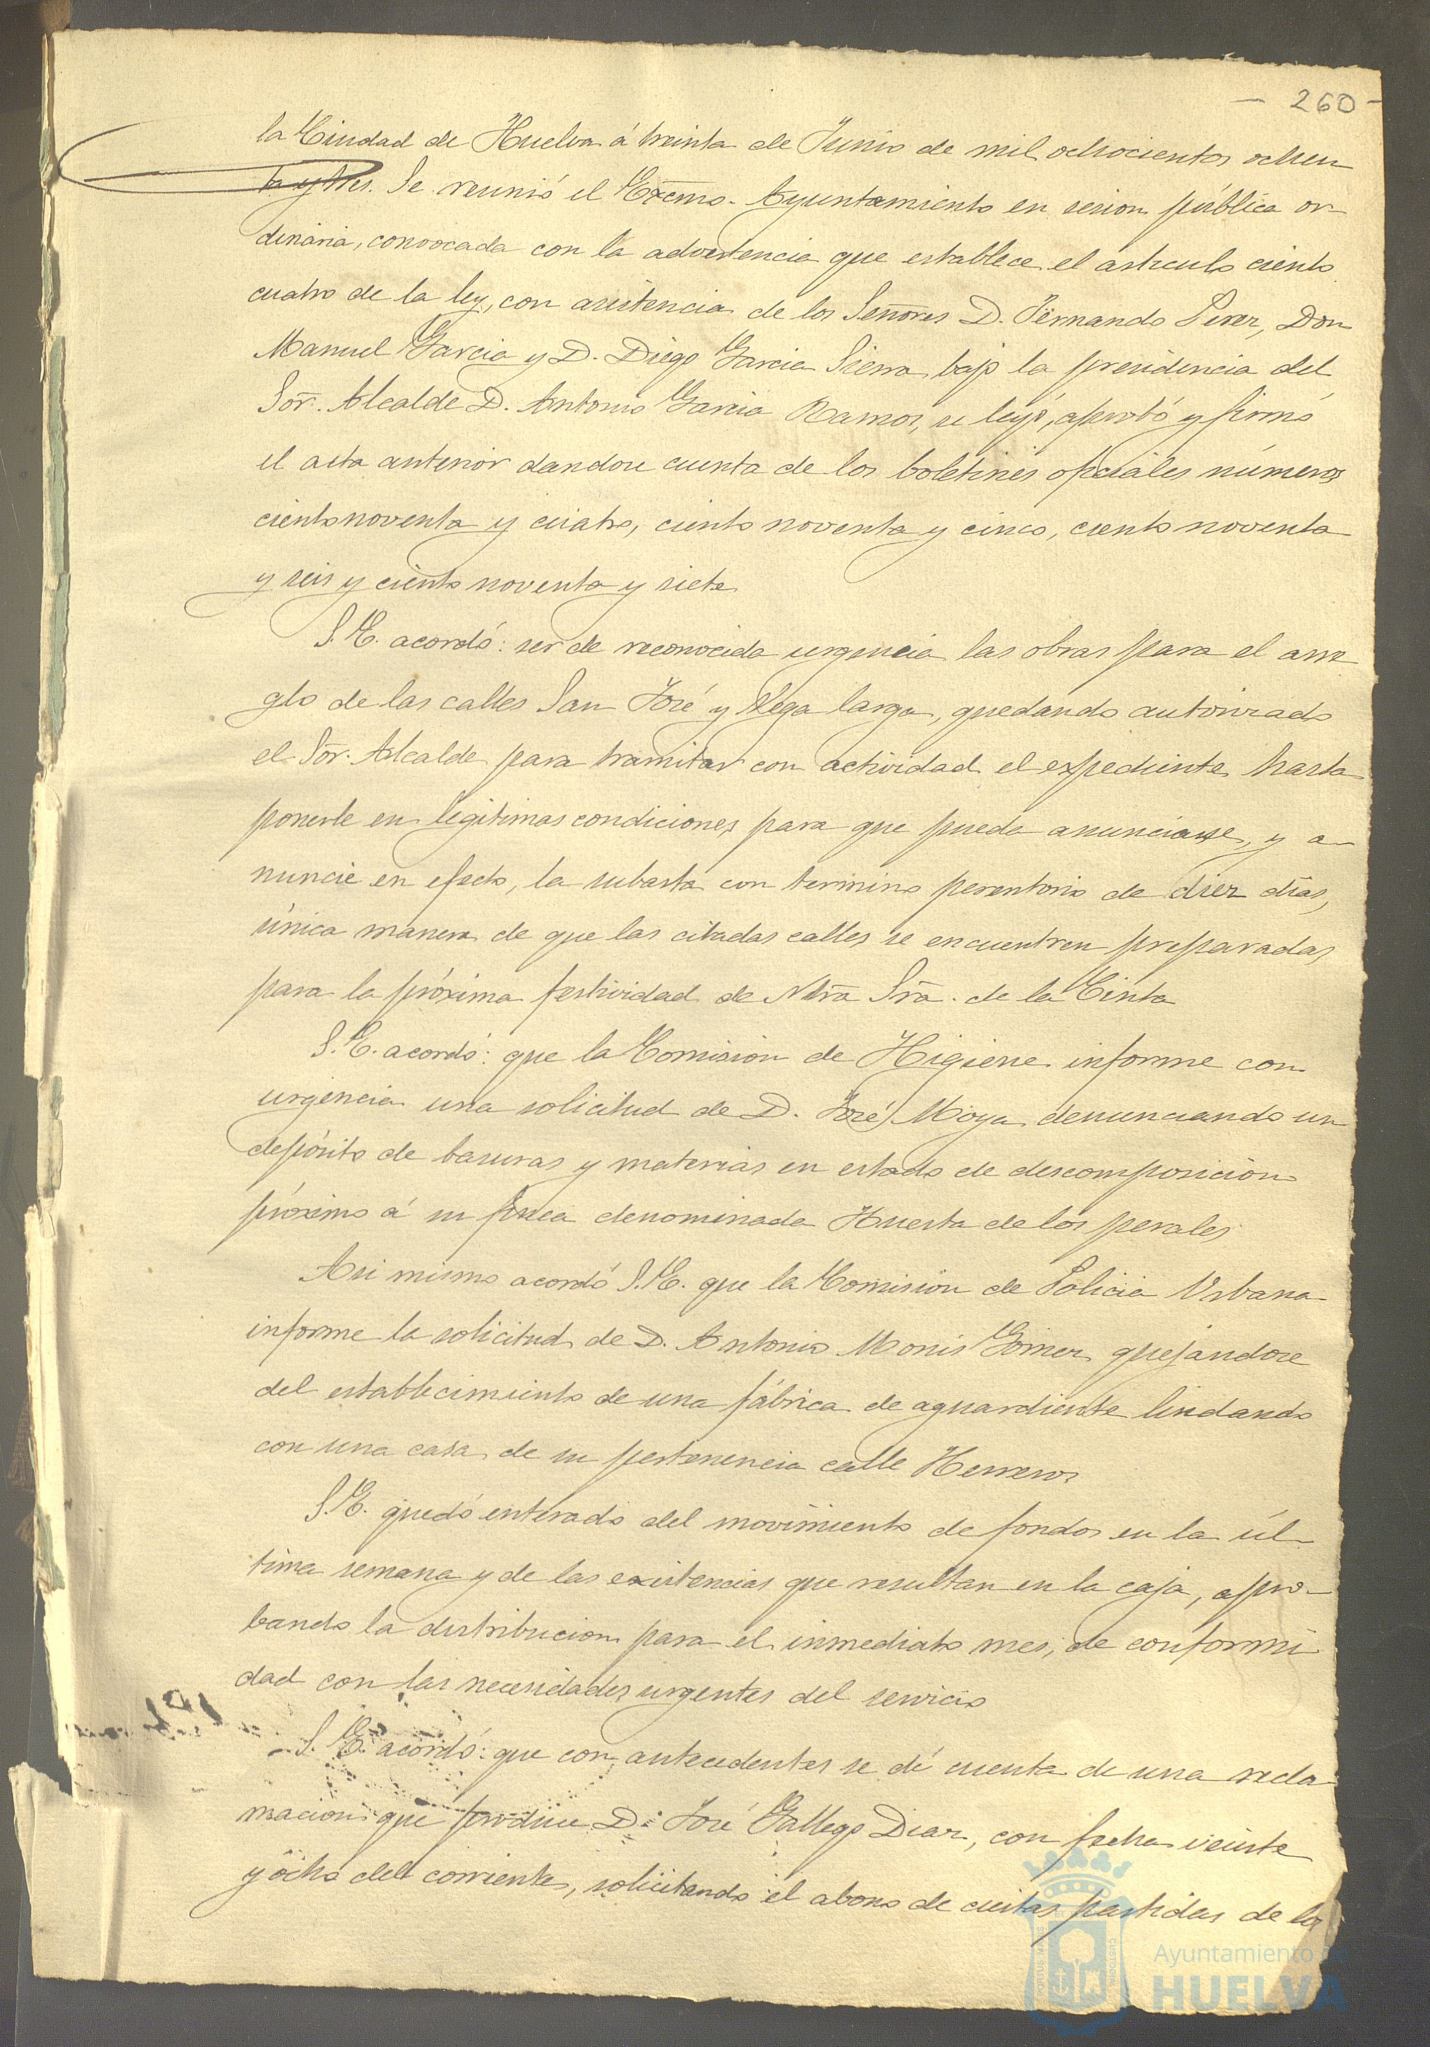 - 260 -
la Ciudad de Huelva á treinta de Junio de mil ochocientos ochen
ta y tres. Se reunió el Excmo. Ayuntamiento en sesion pública or-
dinaria, convocada con la advertencia que establece el artículo ciento
cuatro de la ley, con asistencia de los Señores D. Fernando Perez, Don
Manuel Garcia y D. Diego Garcia Sierra bajo la presidencia del
Sor. Alcalde D. Antonio Garcia Ramos, se leyó, aprobó y firmó
el acta anterior dandose cuenta de los boletines oficiales números
ciento noventa y cuatro, ciento noventa y cinco, ciento noventa
y seis y ciento noventa y siete
S. E. acordó: ser de reconocida urgencia las obras para el arre
glo de las calles San José y Vega larga, quedando autorizado
el Sor. Alcalde para tramitar con actividad el expediente hasta
ponerle en legitimas condiciones para que pueda anunciarse, y a-
nuncie en efecto, la subasta con termino perentorio de diez dias,
única manera de que las citadas calles se encuentren preparadas
para la próxima festividad de Ntra Sra. de la Cinta
S. E. acordó: que la Comision de Higiene informe con
urgencia una solicitud de D. José Moya denunciando un
depósito de basuras y materias en estado de descomposicion
próximo á su finca denominada Huerta de los perales
Asi mismo acordó S. E. que la Comision de Policia Urbana
informe la solicitud de D. Antonio Monis Gomez quejandose
del establecimiento de una fábrica de aguardiente lindando
con una casa de su pertenencia calle Herreros
S. E. quedó enterado del movimiento de fondos en la úl-
tima semana y de las existencias que resultan en la caja, apro-
bando la distribucion para el inmediato mes, de conformi
dad con las necesidades urgentes del servicio
S. E. acordó: que con antecedentes se dé cuenta de una recla
macion que produce D. José Gallego Diaz, con fecha veinte
y ocho del corriente, solicitando el abono de ciertas partidas de los
Ayuntamiento de
HUELVA